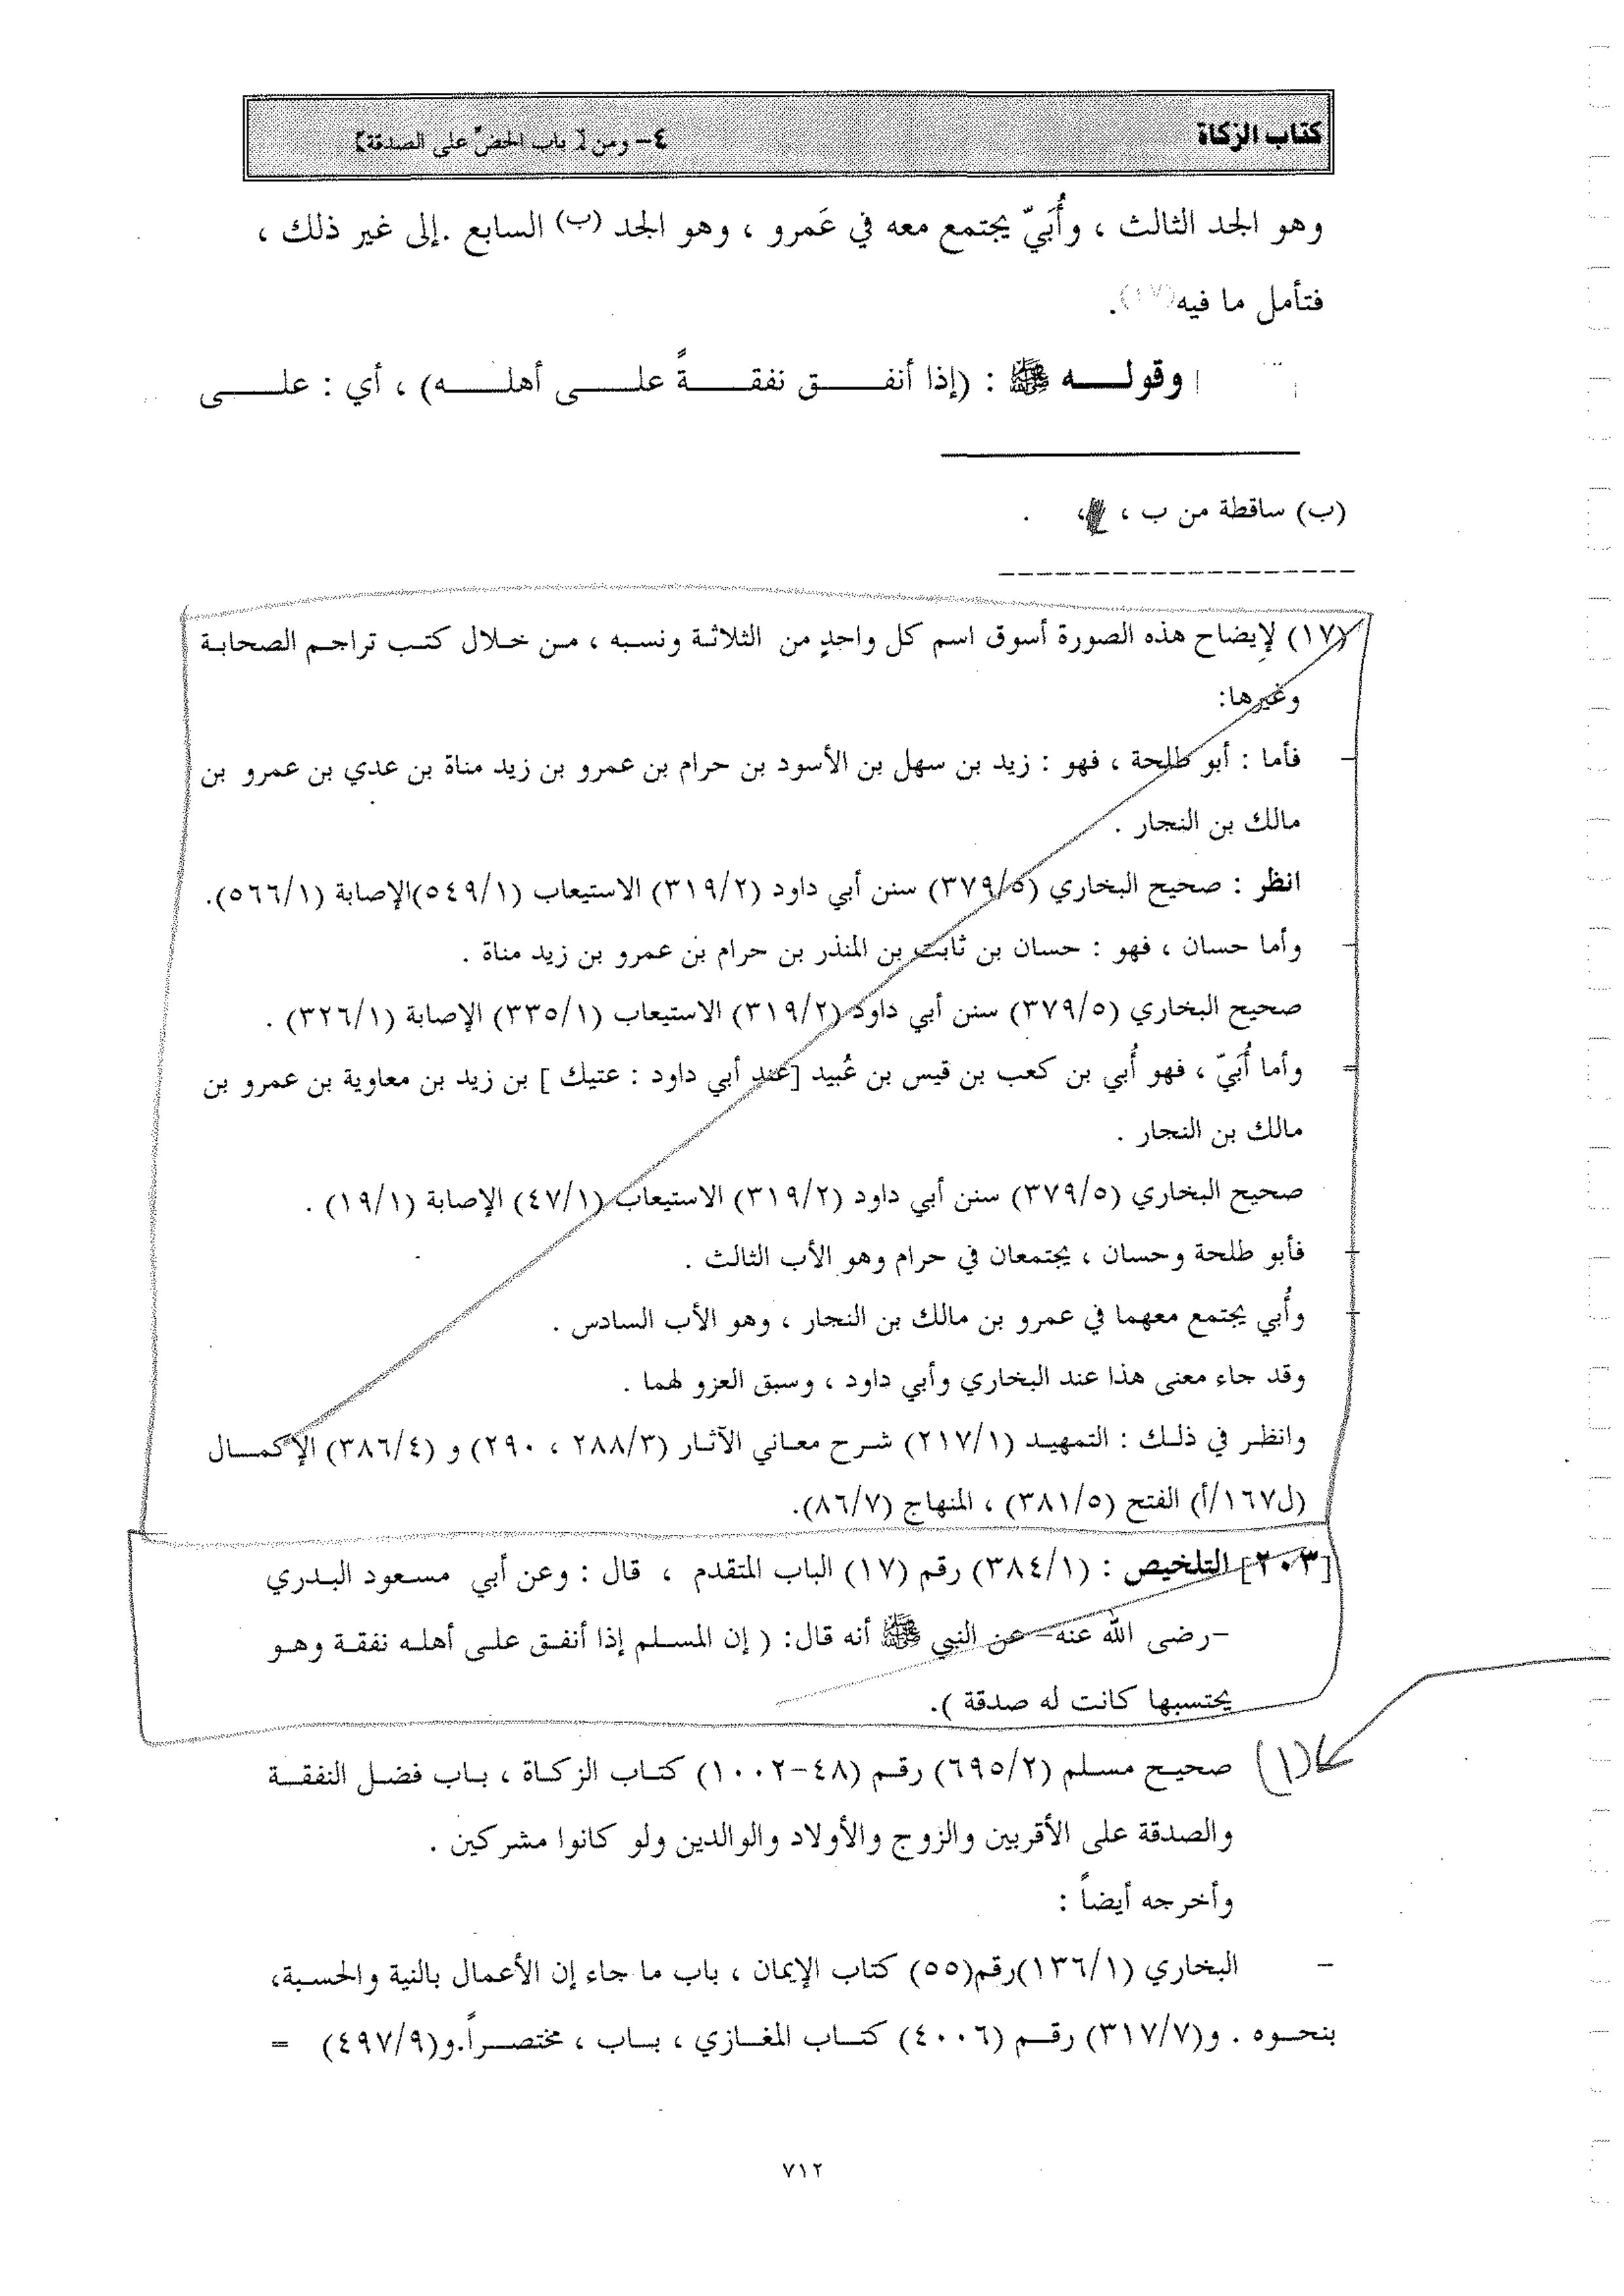 كتاب الزكاة
٤- ومن [ باب الحضّ على الصدقة]
وهو الجد الثالث ، وأُبَيّ يجتمع معه في عَمرو ، وهو الجد (ب) السابع .إلى غير ذلك ،
فتأمل ما فيه(١٧).
وقولـــه ﷺ : (إذا أنفـــق نفقـــةً علـــى أهلـــه) ، أي : علـــى
(ب) ساقطة من ب ، ، .
(١٧) لإيضاح هذه الصورة أسوق اسم كل واحدٍ من الثلاثة ونسبه ، من خلال كتب تراجم الصحابة
وغيرها:
– فأما : أبو طلحة ، فهو : زيد بن سهل بن الأسود بن حرام بن عمرو بن زيد مناة بن عدي بن عمرو بن
مالك بن النجار .
انظر : صحيح البخاري (٣٧٩/٥) سنن أبي داود (٣١٩/٢) الاستيعاب (٥٤٩/١)الإصابة (٥٦٦/١).
– وأما حسان ، فهو : حسان بن ثابت بن المنذر بن حرام بن عمرو بن زيد مناة .
صحيح البخاري (٣٧٩/٥) سنن أبي داود (٣١٩/٢) الاستيعاب (٣٣٥/١) الإصابة (٣٢٦/١) .
= وأما أُبَيّ ، فهو أُبي بن كعب بن قيس بن عُبيد [عند أبي داود : عتيك ] بن زيد بن معاوية بن عمرو بن
مالك بن النجار .
صحيح البخاري (٣٧٩/٥) سنن أبي داود (٣١٩/٢) الاستيعاب (٤٧/١) الإصابة (١٩/١) .
– فأبو طلحة وحسان ، يجتمعان في حرام وهو الأب الثالث .
– وأُبي يجتمع معهما في عمرو بن مالك بن النجار ، وهو الأب السادس .
وقد جاء معنى هذا عند البخاري وأبي داود ، وسبق العزو لهما .
وانظر في ذلك : التمهيد (٢١٧/١) شرح معاني الآثار (٢٨٨/٣ ، ٢٩٠) و (٣٨٦/٤) الإكمـــال
(ل١٦٧/أ) الفتح (٣٨١/٥) ، المنهاج (٨٦/٧).
[٢٠٣] التلخيص : (٣٨٤/١) رقم (١٧) الباب المتقدم ، قال : وعن أبي مسعود البدري
–رضى الله عنه– عن النبي ﷺ أنه قال: ( إن المسلم إذا أنفق على أهله نفقة وهو
يحتسبها كانت له صدقة ).
(١) صحيح مسلم (٦٩٥/٢) رقم (٤٨–١٠٠٢) كتاب الزكاة ، باب فضل النفقة
والصدقة على الأقربين والزوج والأولاد والوالدين ولو كانوا مشركين .
وأخرجه أيضاً :
– البخاري (١٣٦/١)رقم(٥٥) كتاب الإيمان ، باب ما جاء إن الأعمال بالنية والحسبة،
بنحوه . و(٣١٧/٧) رقم (٤٠٠٦) كتاب المغازي ، باب ، مختصراً.و(٤٩٧/٩) =
٧١٢